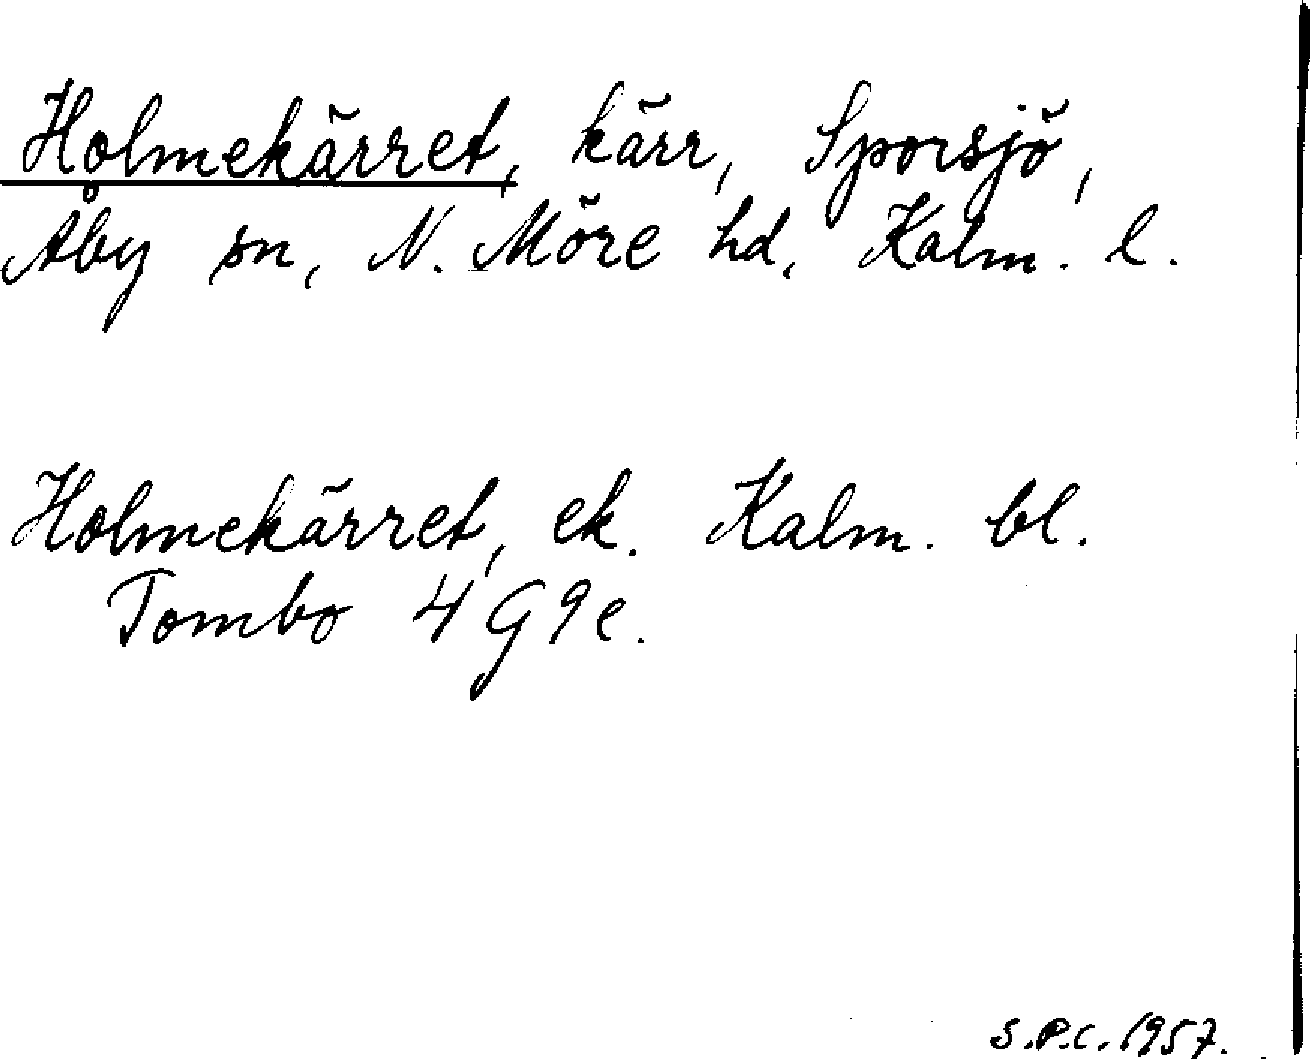 Holmekärret, kärr, Sporsjö,
Åby sn, N. Möre hd, Kalm. l.
Holmekärret, ek. Kalm. bl.
Tombo 4 G 9 e.
S.P.C. 1957.